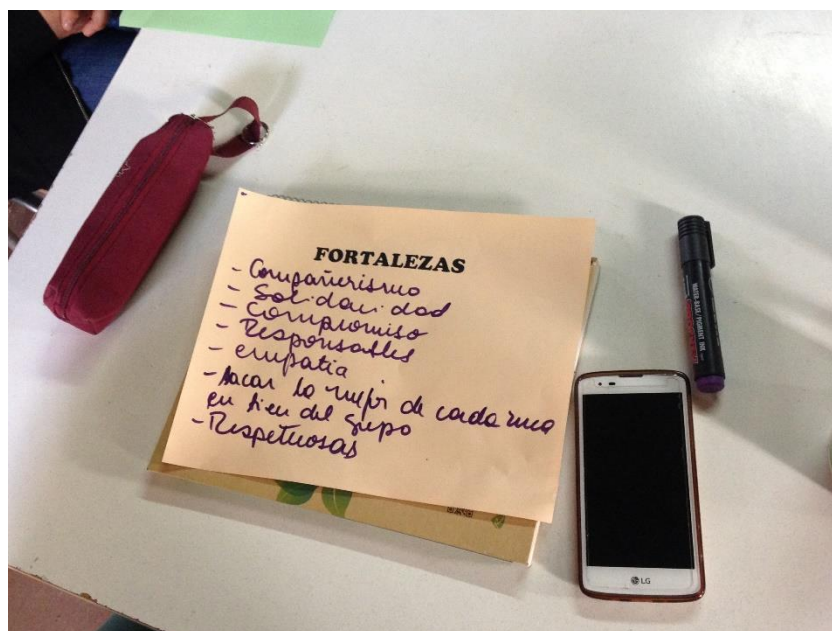 FORTALEZAS
- Compañerismo
- Solidaridad
- Compromiso
- Responsables
- empatia
- Sacar lo mejor de cada una
en bien del grupo
- Respetuosas
WATER-BASED PIGMENT INK
LG